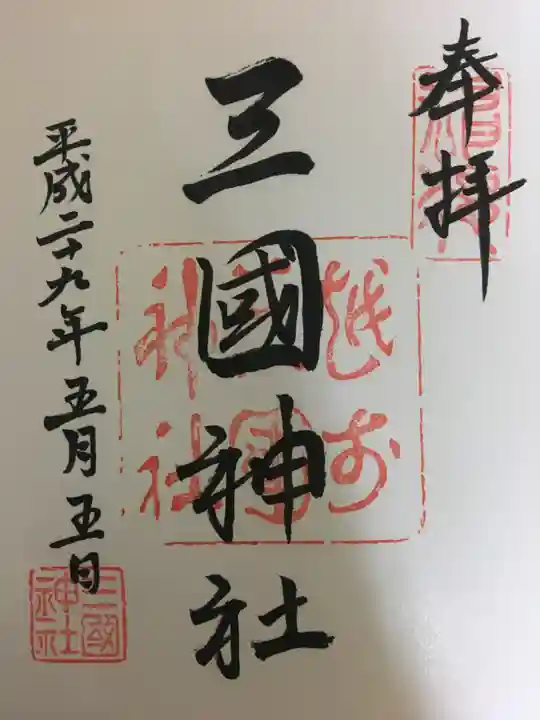 奉拝
三國神社
平成二十九年五月五日
越前
三國
神社
三國
神社